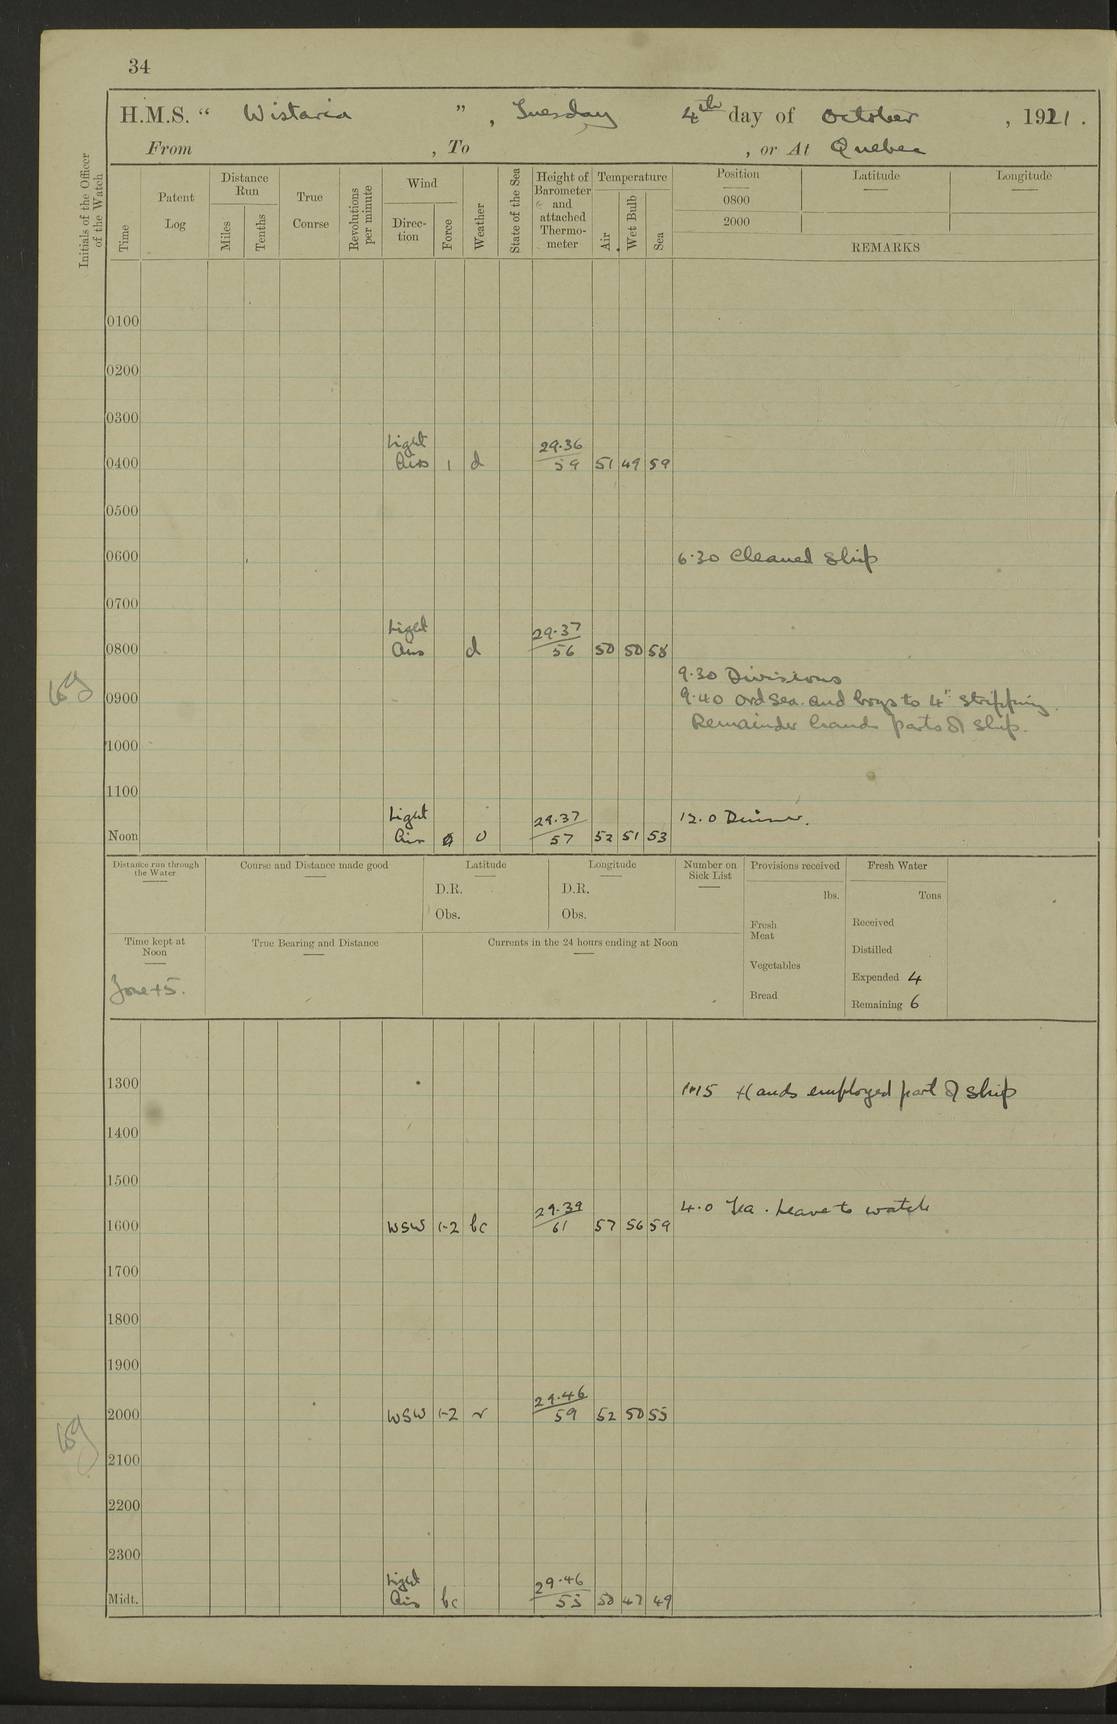 34
H.M.S. “ Wistaria ”, Tuesday 4th day of October, 1921.
From , To , or At Quebec
Initials of the Officer of the Watch
Time
Patent Log
Distance Run
Miles Tenths
True Course
Revolutions per minute
Wind
Direction Force
Weather
State of the Sea
Height of Barometer and attached Thermometer
Temperature
Air Wet Bulb Sea
Position Latitude Longitude
0800
2000
REMARKS
0100
0200
0300
Light 29.36
0400 Airs 1 d 59 51 49 59
0500
0600 6.30 Cleaned Ship
0700
Light 29.37
0800 Airs d 56 50 50 58
9.30 Divisions
0900 9.40 Ord Sea. and boys to 4" stripping.
Remainder hands parts of ship.
1000
1100
Light 29.37 12.0 Dinner.
Noon Airs 0 57 52 51 53
Distance run through the Water
Course and Distance made good
Latitude Longitude
D.R. D.R.
Obs. Obs.
Number on Sick List
Provisions received
lbs.
Fresh Meat
Vegetables
Bread
Fresh Water
Tons
Received
Distilled
Expended 4
Remaining 6
Time kept at Noon
Zone +5.
True Bearing and Distance
Currents in the 24 hours ending at Noon
1300 1.15 Hands employed part of ship
1400
1500
29.39 4.0 Tea. Leave to watch
1600 WSW 1-2 bc 61 57 56 59
1700
1800
1900
29.46
2000 WSW 1-2 r 59 52 50 55
2100
2200
2300
Light 29.46
Midt. Airs bc 55 50 47 49